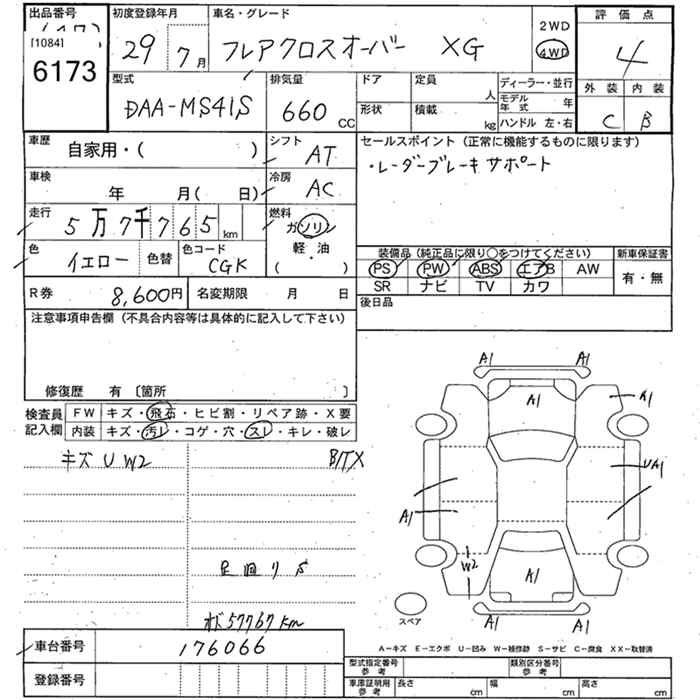 出品番号 初度登録年月 車名・グレード 評価点
[1084]
6173
29 7月 フレアクロスオーバー XG 2WD 4WD 4
型式 排気量 ドア 定員 人 ディーラー・並行 外装 内装
DAA-MS41S 660 CC 形状 積載 kg モデル年式 年 C B
ハンドル 左・右
車歴 自家用・( ) シフト AT セールスポイント (正常に機能するものに限ります)
車検 年 月( 日) 冷房 AC ・レーダーブレーキサポート
走行 5万7千765km 燃料 ガソリン
軽・油
( )
色 イエロー 色替 色コード CGK
装備品 (純正品に限り○をつけてください) 新車保証書
PS PW ABS エアB AW 有・無
SR ナビ TV カワ
R券 8,600円 名変期限 月 日 後日品
注意事項申告欄 (不具合内容等は具体的に記入して下さい)
修復歴 有 〔箇所 〕
検査員記入欄 FW キズ・飛石・ヒビ割・リペア跡・X要
内装 キズ・汚レ・コゲ・穴・スレ・キレ・破レ
キズ U W2 B/TX
足回りS
オド57767km
A1 A1
A1 A1
UA1
A1
W2 A1
A1 A1
スペア
A-キズ E-エクボ U-凹み W-補修跡 S-サビ C-腐食 XX-取替済
車台番号 176066
登録番号
型式指定番号 参考 類別区分番号 参考
車庫証明用 参考 長さ cm 幅 cm 高さ cm